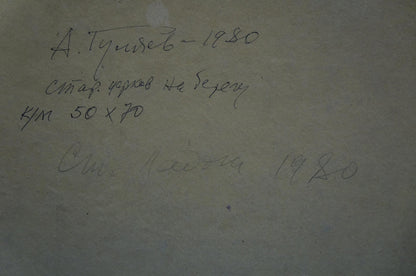 А. Гуляев – 1980
стар. церков на берегу
к/м 50 х 70
1980